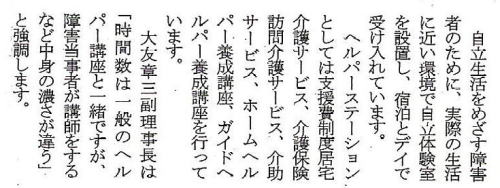 自立生活をめざす障害
者のために、実際の生活
に近い環境で自立体験室
を設置し、宿泊とデイで
受け入れています。
　ヘルパーステーション
としては支援費制度居宅
介護サービス、介護保険
訪問介護サービス、介助
サービス、ホームヘル
パー養成講座、ガイドヘ
ルパー養成講座を行って
います。
　大友章三副理事長は
「時間数は一般のヘル
パー講座と一緒ですが、
障害当事者が講師をする
など中身の濃さが違う」
と強調します。